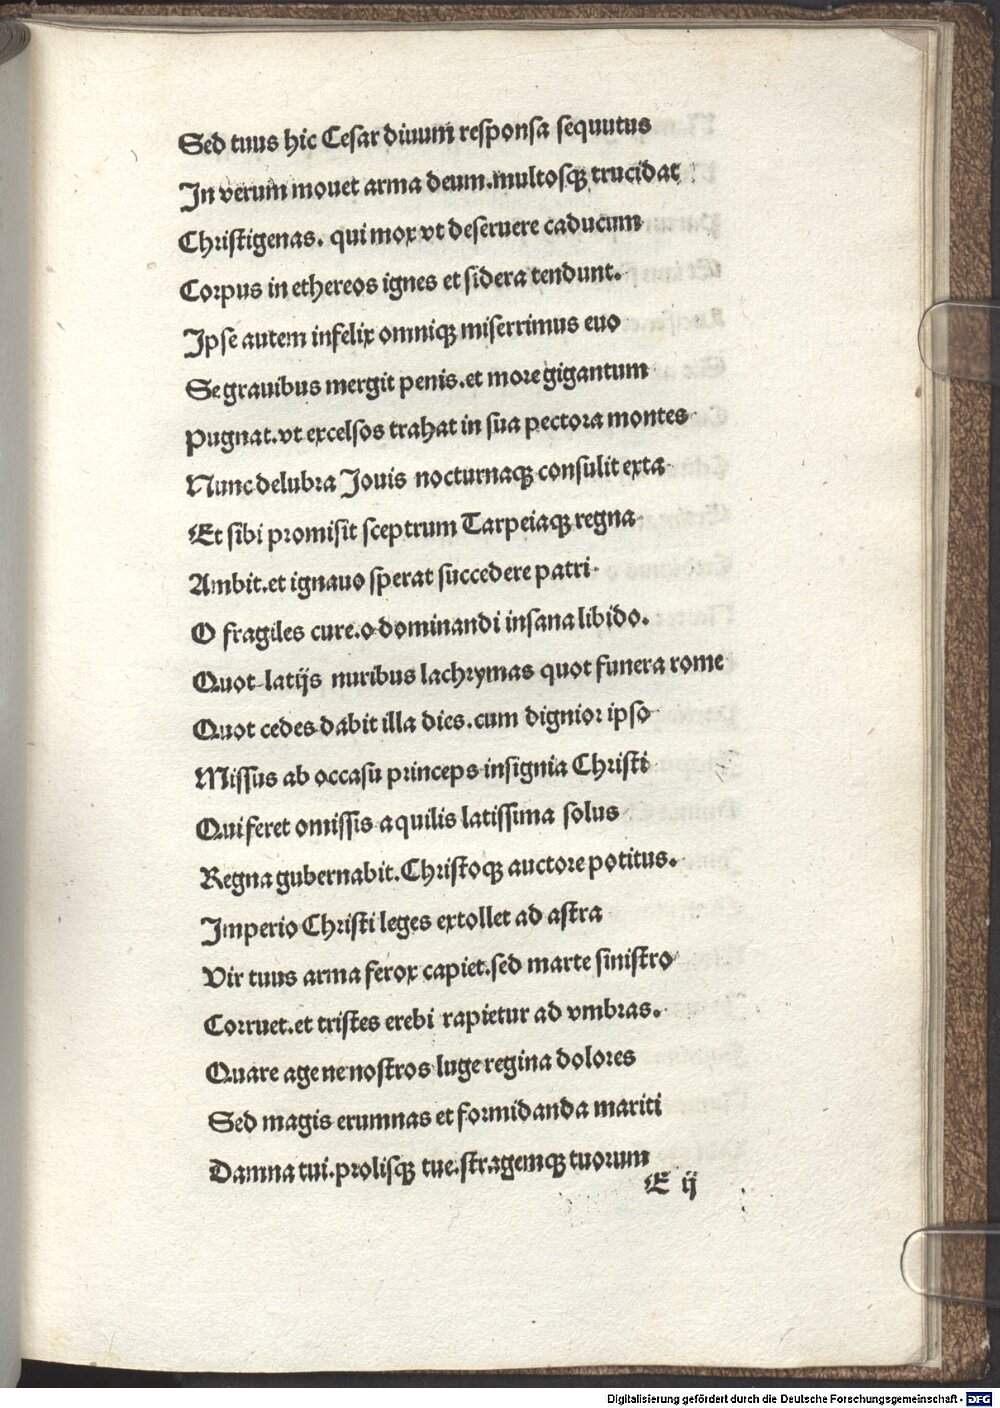 Sed tuus hic Cesar diuum responsa sequutus
In verum mouet arma deum.multosqꝫ trucidat
Christigenas. qui mox vt deseruere caducum
Corpus in ethereos ignes et sidera tendunt.
Ipse autem infelix omniqꝫ miserrimus euo
Se grauibus mergit penis.et more gigantum
Pugnat.vt excelsos trahat in sua pectora montes
Nunc delubra Jouis nocturnaqꝫ consulit exta
Et sibi promisit sceptrum Tarpeiaqꝫ regna
Ambit.et ignauo sperat succedere patri
O fragiles cure.o dominandi insana libido.
Quot latijs nuribus lachrymas quot funera rome
Quot cedes dabit illa dies.cum dignior ipso
Missus ab occasu princeps insignia Christi
Qui feret omissis aquilis latissima solus
Regna gubernabit.Christoqꝫ auctore potitus.
Imperio Christi leges extollet ad astra
Vir tuus arma ferox capiet.sed marte sinistro
Corruet.et tristes erebi rapietur ad vmbras.
Quare age ne nostros luge regina dolores
Sed magis erumnas et formidanda mariti
Damna tui.prolisqꝫ tue.stragemqꝫ tuorum
E ij
Digitalisierung gefördert durch die Deutsche Forschungsgemeinschaft - DFG